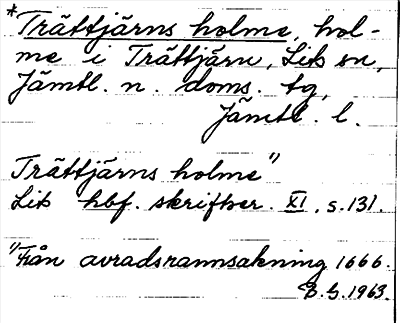 *Trättjärns holme, hol-
me i Trättjärn, Lits sn,
Jämtl. n. doms. tg,
Jämtl. l.
Trättjärns holme"
Lits hbf. skrifter. XI, s. 131.
"Från avradsrannsakning 1666.
B.G. 1963.